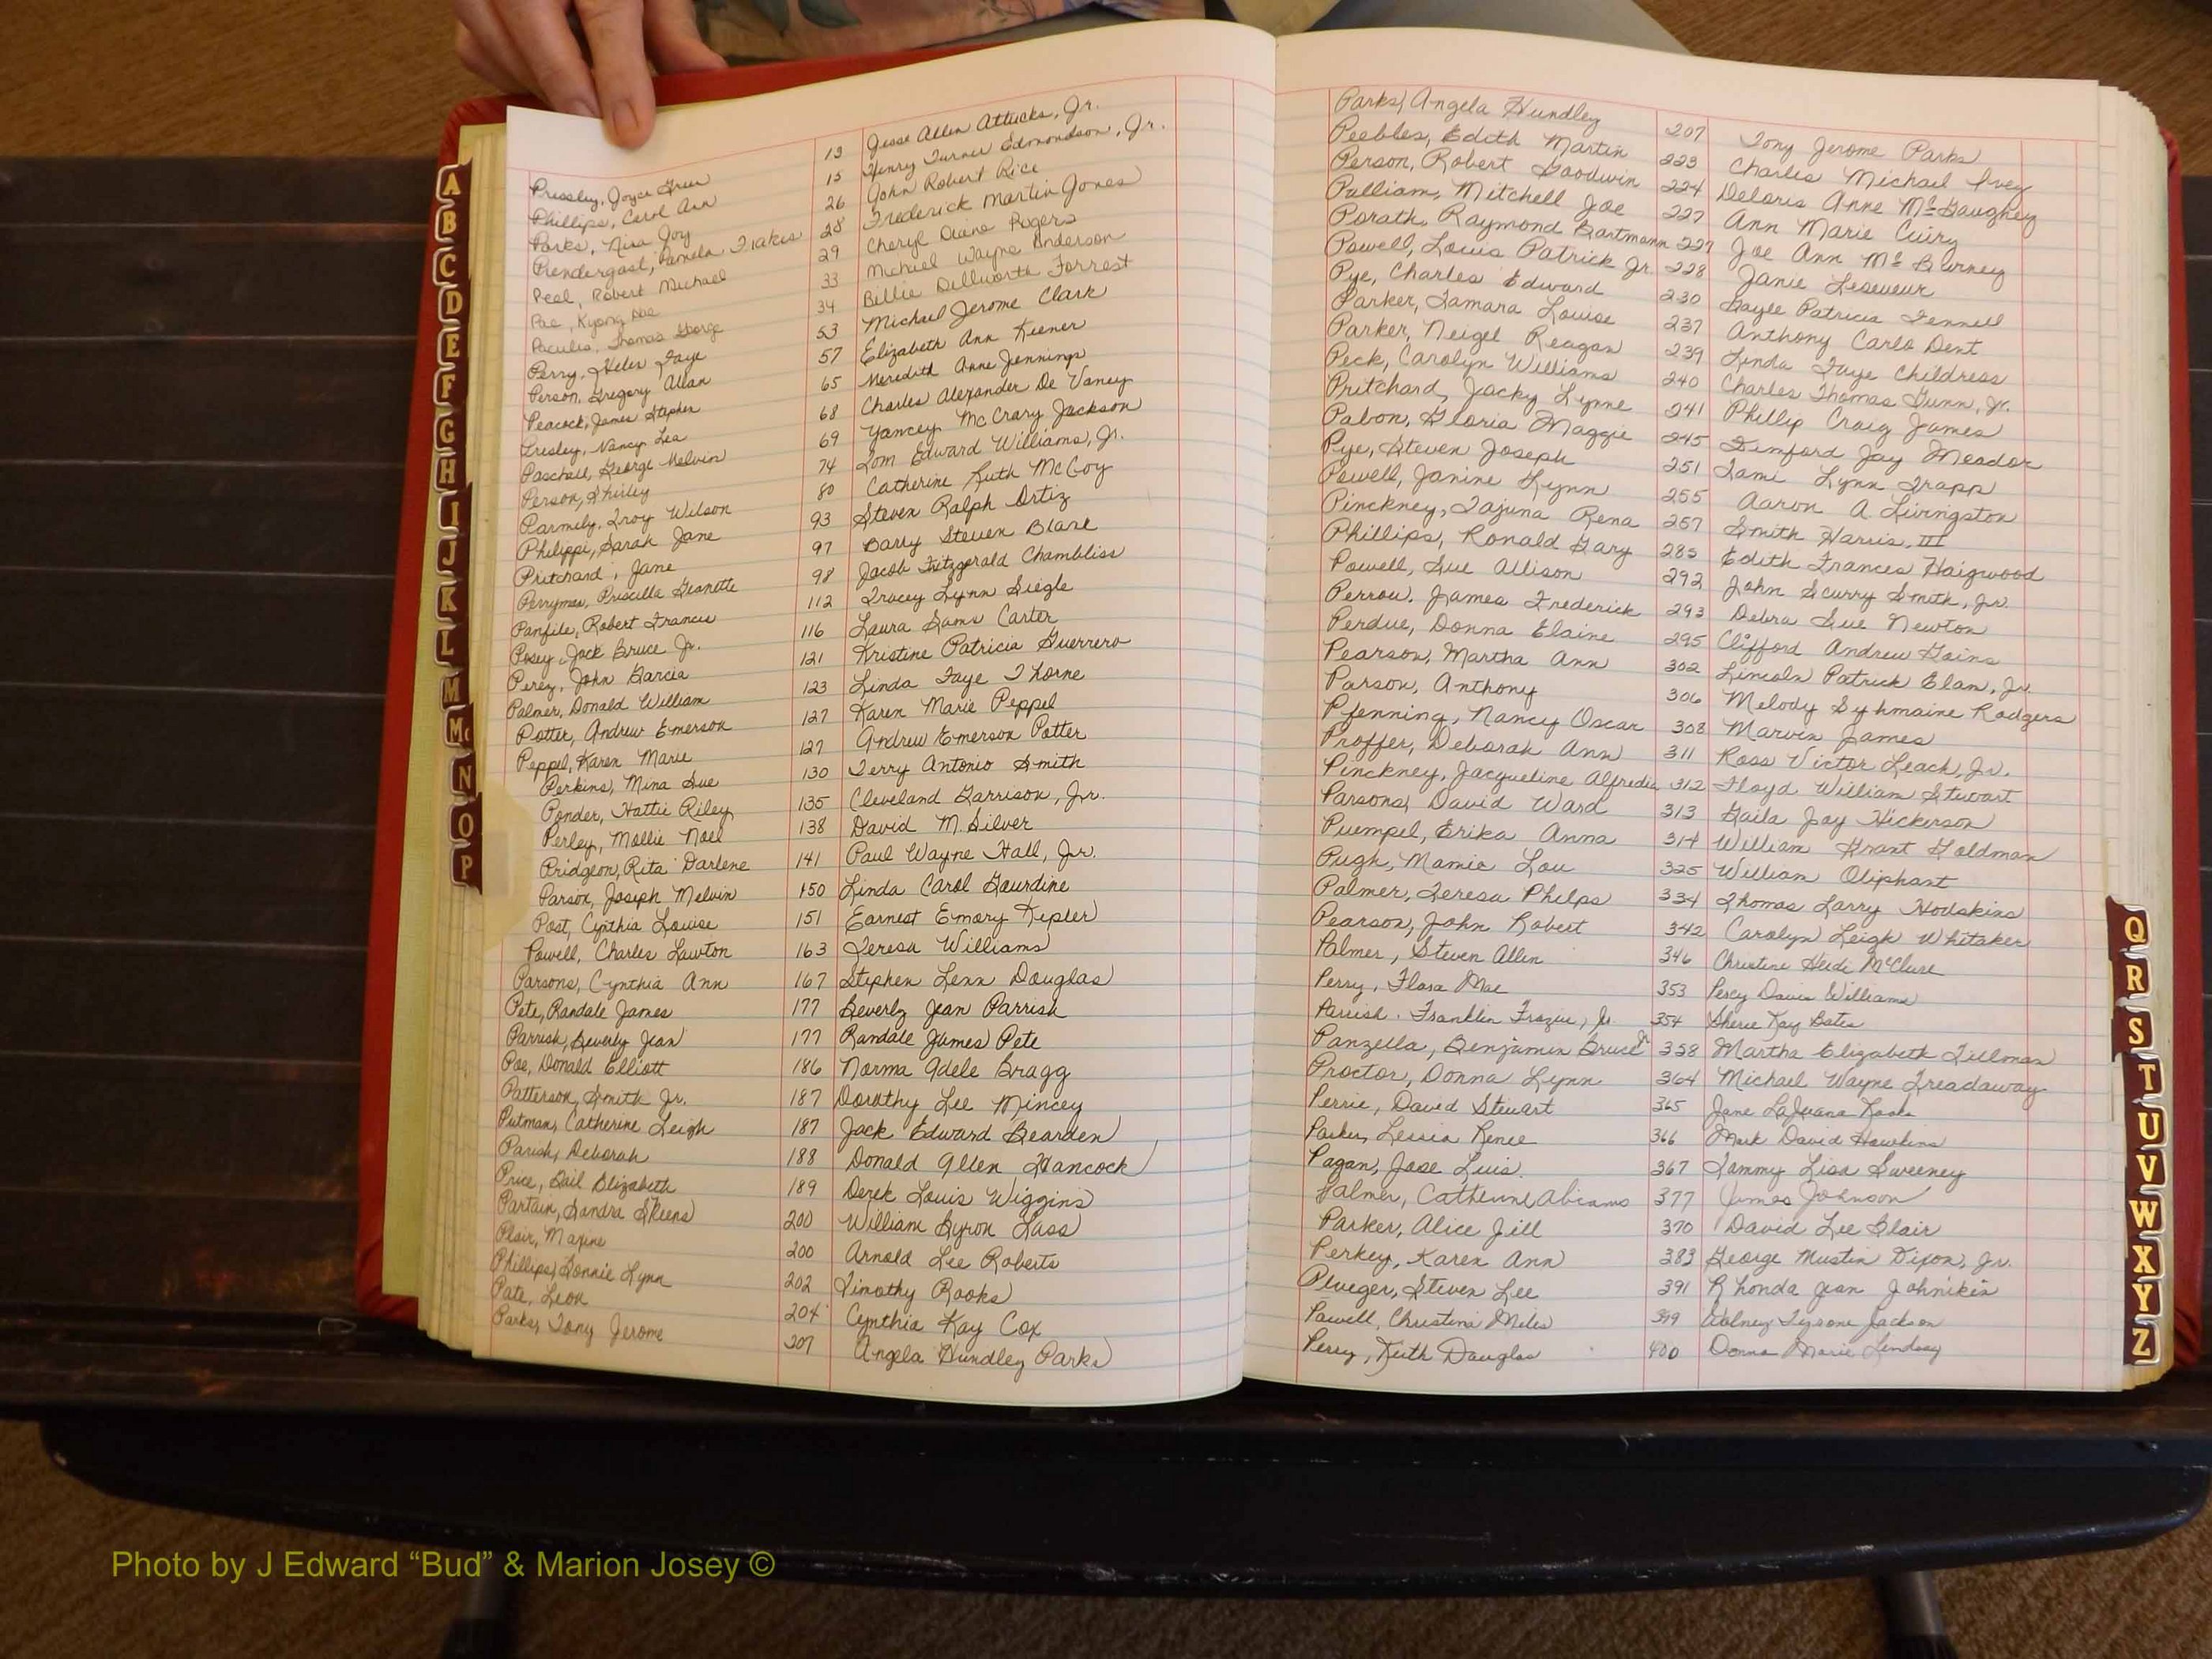 A
B
C
D
E
F
G
H
I
J
K
L
M
Mc
N
O
P
Pressley, Joyce Greer 13 Jesse Allen Attucks, Jr.
Phillips, Carol Ann 15 Henry Turner Edmondson, Jr.
Parks, Nina Joy 26 John Robert Rice
Prendergast, Pamela Frakes 28 Frederick Martin Jones
Peel, Robert Michael 29 Cheryl Diane Rogers
Pae, Kyong 33 Michael Wayne Anderson
Paculis, Thomas George 34 Billie Dillworth Forrest
Perry, Helen Faye 53 Michael Jerome Clark
Person, Gregory Allan 57 Elizabeth Ann Keener
Peacock, James Stephen 65 Meredith Anne Jennings
Presley, Nancy Lea 68 Charles Alexander De Vaney
Paschall, George Melvin 69 Yancey McCrary Jackson
Person, Shirley 74 Tom Edward Williams, Jr.
Parmily, Troy Wilson 80 Catherine Ruth McCoy
Philippi, Sarah Jane 93 Steven Ralph Ortiz
Pritchard, Jane 97 Barry Steven Blase
Perryman, Priscilla Jeanette 98 Jacob Fitzgerald Chambliss
Panfile, Robert Francis 112 Tracey Lynn Siegle
Posey, Jack Bruce Jr. 116 Laura Sams Carter
Perez, John Garcia 121 Kristine Patricia Guerrero
Palmer, Donald William 123 Linda Faye Thorne
Potter, Andrew Emerson 127 Karen Marie Peppel
Peppel, Karen Marie 127 Andrew Emerson Potter
Perkins, Mina Sue 130 Terry Antonio Smith
Ponder, Hattie Riley 135 Cleveland Garrison, Jr.
Perley, Mollie Noel 138 David M. Silver
Pridgeon, Rita Darlene 141 Paul Wayne Hall, Jr.
Parson, Joseph Melvin 150 Linda Carol Gourdine
Post, Cynthia Louise 151 Earnest Emory Kepler
Powell, Charles Lawton 163 Teresa Williams
Parsons, Cynthia Ann 167 Stephen Lenn Douglas
Pete, Randale James 177 Beverly Jean Parrish
Parrish, Beverly Jean 177 Randale James Pete
Poe, Donald Elliott 186 Norma Adele Bragg
Patterson, Smith Jr. 187 Dorothy Lee Mincey
Putman, Catherine Leigh 187 Jack Edward Bearden
Parish, Deborah 188 Donald Allen Hancock
Price, Gail Elizabeth 189 Derek Louis Wiggins
Partain, Sandra Skeens 200 William Byron Lass
Plair, Maxine 200 Arnold Lee Roberts
Phillips, Bonnie Lynn 202 Timothy Rooks
Pate, Leon 204 Cynthia Kay Cox
Parks, Tony Jerome 207 Angela Hundley Parks
Parks, Angela Hundley 207 Tony Jerome Parks
Peebles, Edith Martin 223 Charles Michael Ivey
Person, Robert Goodwin 224 Deloris Anne McGaughey
Pulliam, Mitchell Joe 227 Ann Marie Cuiry
Porath, Raymond Bartmann 227 Joe Ann McBurney
Powell, Louis Patrick Jr. 228 Janie Leseueur
Pye, Charles Edward 230 Gayle Patricia Fennell
Parker, Tamara Louise 237 Anthony Carlo Dent
Parker, Neigel Reagan 239 Linda Faye Childress
Peck, Carolyn Williams 240 Charles Thomas Gunn, Jr.
Pritchard, Jacky Lynne 241 Phillip Craig James
Pabon, Gloria Maggie 245 Jay Meador
Pye, Steven Joseph 251 Tami Lynn Trapp
Powell, Janine Lynn 255 Aaron A. Livingston
Pinckney, Tajuna Rena 257 Smith Harris, III
Phillips, Ronald Gary 285 Edith Frances Haigwood
Powell, Sue Allison 292 John Scurry Smith, Jr.
Perrow, James Frederick 293 Debra Sue Newton
Perdue, Donna Elaine 295 Clifford Andrew Goins
Pearson, Martha Ann 302 Lincoln Patrick Elam, Jr.
Parson, Anthony 306 Melody Syhmaine Rodgers
Pfenning, Nancy Oscar 308 Marvin James
Proffer, Deborah Ann 311 Ross Victor Leach, Jr.
Pinckney, Jacqueline Alfredia 312 Floyd William Stewart
Parsons, David Ward 313 Gaila Jay Hickerson
Puempel, Erika Anna 314 William Grant Goldman
Pugh, Mamie Lou 325 William Oliphant
Palmer, Teresa Phelps 334 Thomas Larry Hodskins
Pearson, John Robert 342 Carolyn Leigh Whitaker
Palmer, Steven Allen 346 Christine Heidi McClure
Perry, Flora Mae 353 Percy Davis Williams
Parrish, Franklin Frazier, Jr. 354 Sherie Kay Bates
Panzella, Benjamin Bruce Jr 358 Martha Elizabeth Tillman
Proctor, Donna Lynn 364 Michael Wayne Treadaway
Perrie, David Stewart 365 Jane LaJuana
Parker, Lessia Renee 366 Mark David Hawkins
Pagan, Jose Luis 367 Tammy Lisa Sweeney
Palmer, Catherine Abrams 377 James Johnson
Parker, Alice Jill 370 David Lee Blair
Perkey, Karen Ann 383 George Mustin Dixon, Jr.
Plueger, Steven Lee 391 Rhonda Jean Johnikin
Powell, Christina Miles 399 Tyrone Jackson
Perry, Keith Douglas 400 Donna Marie Lindsey
Q
R
S
T
U
V
W
X
Y
Z
Photo by J Edward “Bud” & Marion Josey ©